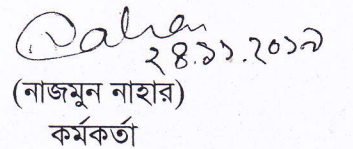 ২৪.১১.২০১৯
(নাজমুন নাহার)
কর্মকর্তা